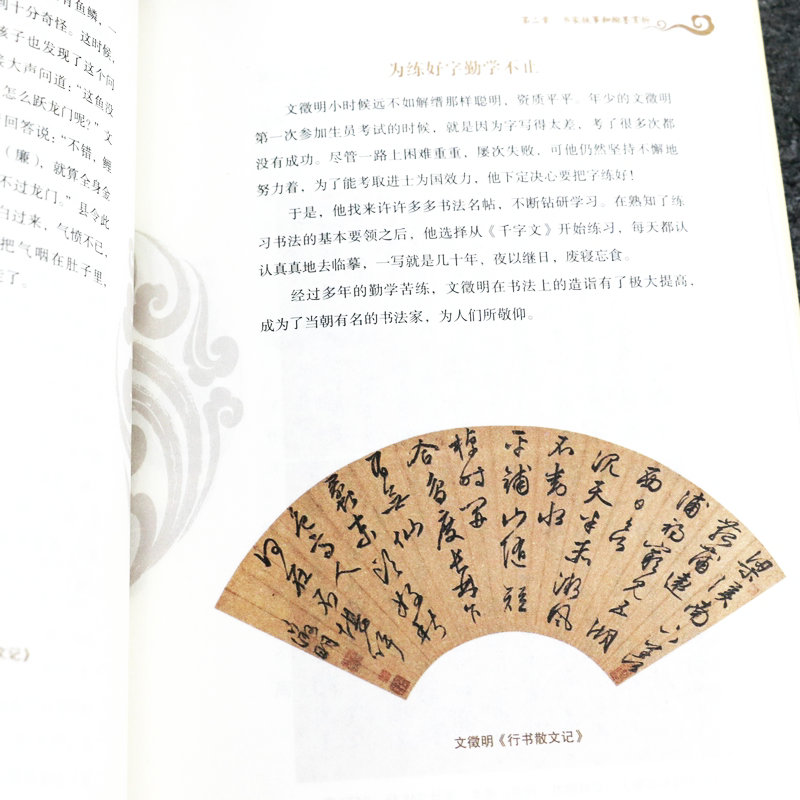 有鱼鳞，一
到十分奇怪。这时候，
孩子也发现了这个问
大声问道：“这鱼没
怎么跃龙门呢？”文
回答说：“不错，鲤
（廉），就算全身金
不过龙门。”县令此
白过来，气愤不已，
把气咽在肚子里，
走了。
文记》
第二章
为练好字勤学不止
文徵明小时候远不如解缙那样聪明，资质平平。年少的文徵明
第一次参加生员考试的时候，就是因为字写得太差，考了很多次都
没有成功。尽管一路上困难重重，屡次失败，可他仍然坚持不懈地
努力着，为了能考取进士为国效力，他下定决心要把字练好！
于是，他找来许许多多书法名帖，不断钻研学习。在熟知了练
习书法的基本要领之后，他选择从《千字文》开始练习，每天都认
认真真地去临摹，一写就是几十年，夜以继日，废寝忘食。
经过多年的勤学苦练，文徵明在书法上的造诣有了极大提高，
成为了当朝有名的书法家，为人们所敬仰。
文徵明《行书散文记》